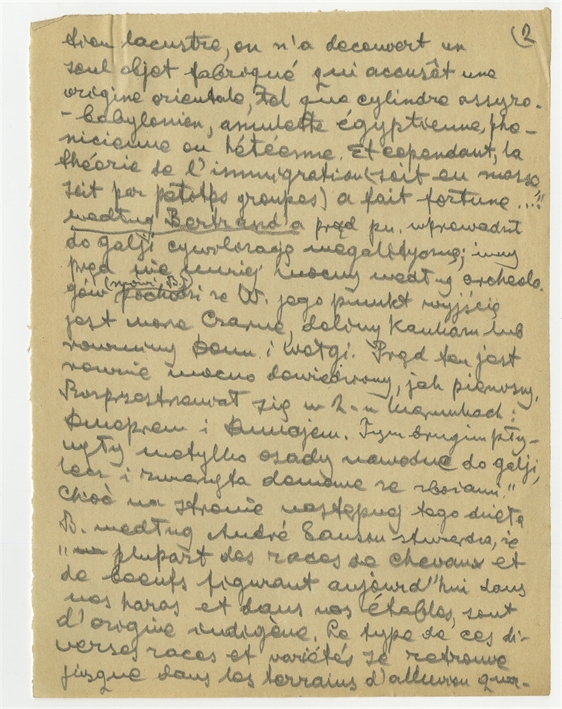 (2
tion lacustre, on n'a decouvert un
seul objet fabriqué qui accusât une
origine orientale, tel que cylindre assyro-
-babylonien, amulette égyptienne, phé-
nicienne ou hétéenne. Et cependant, la
théorie de l'immigration (soit en masse,
soit par petits groupes) a fait fortune...!"
według Bertrand'a prąd pn. wprowadził
do galji cywilizację megalityczną; inny
prąd nie mniej mocny według archeolo-
gów (mówi B.) pochodzi ze W. jego punkt wyjścia
jest morze Czarne, doliny Kaukazu lub
równiny Donu i Wołgi. Prąd ten jest
równie mocno dowiedziony, jak pierwszy.
Rozprzestrzeniał się w 2-u kierunkach:
Dnieprem i Dunajem. Tym drugim przy-
były nietylko osady nawodne do galji,
lecz i zwierzęta domowe ze zbożami."
Choć na stronie następnej tego dzieła
B. według André Sanson stwierdza, że
"plupart des races de chevaux et
de boeufs figurant aujourd'hui dans
nos haras et dans nos étables, sont
d'origine indigène. Le type de ces di-
verses races et variétés se retrouve
jusque dans les terrains d'alluvion quar-